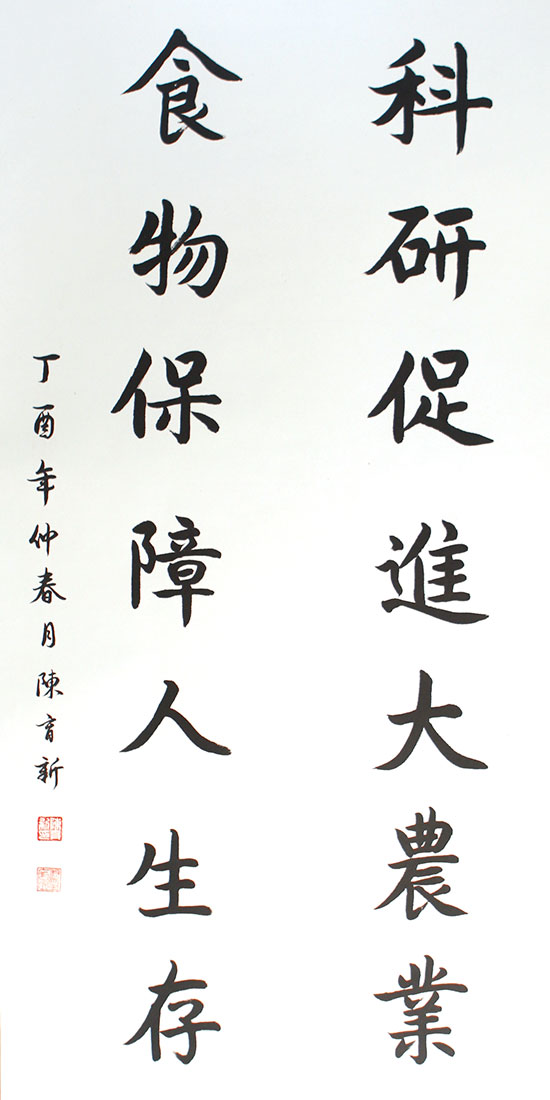 科研促進大農業
食物保障人生存
丁酉年仲春月陳育新